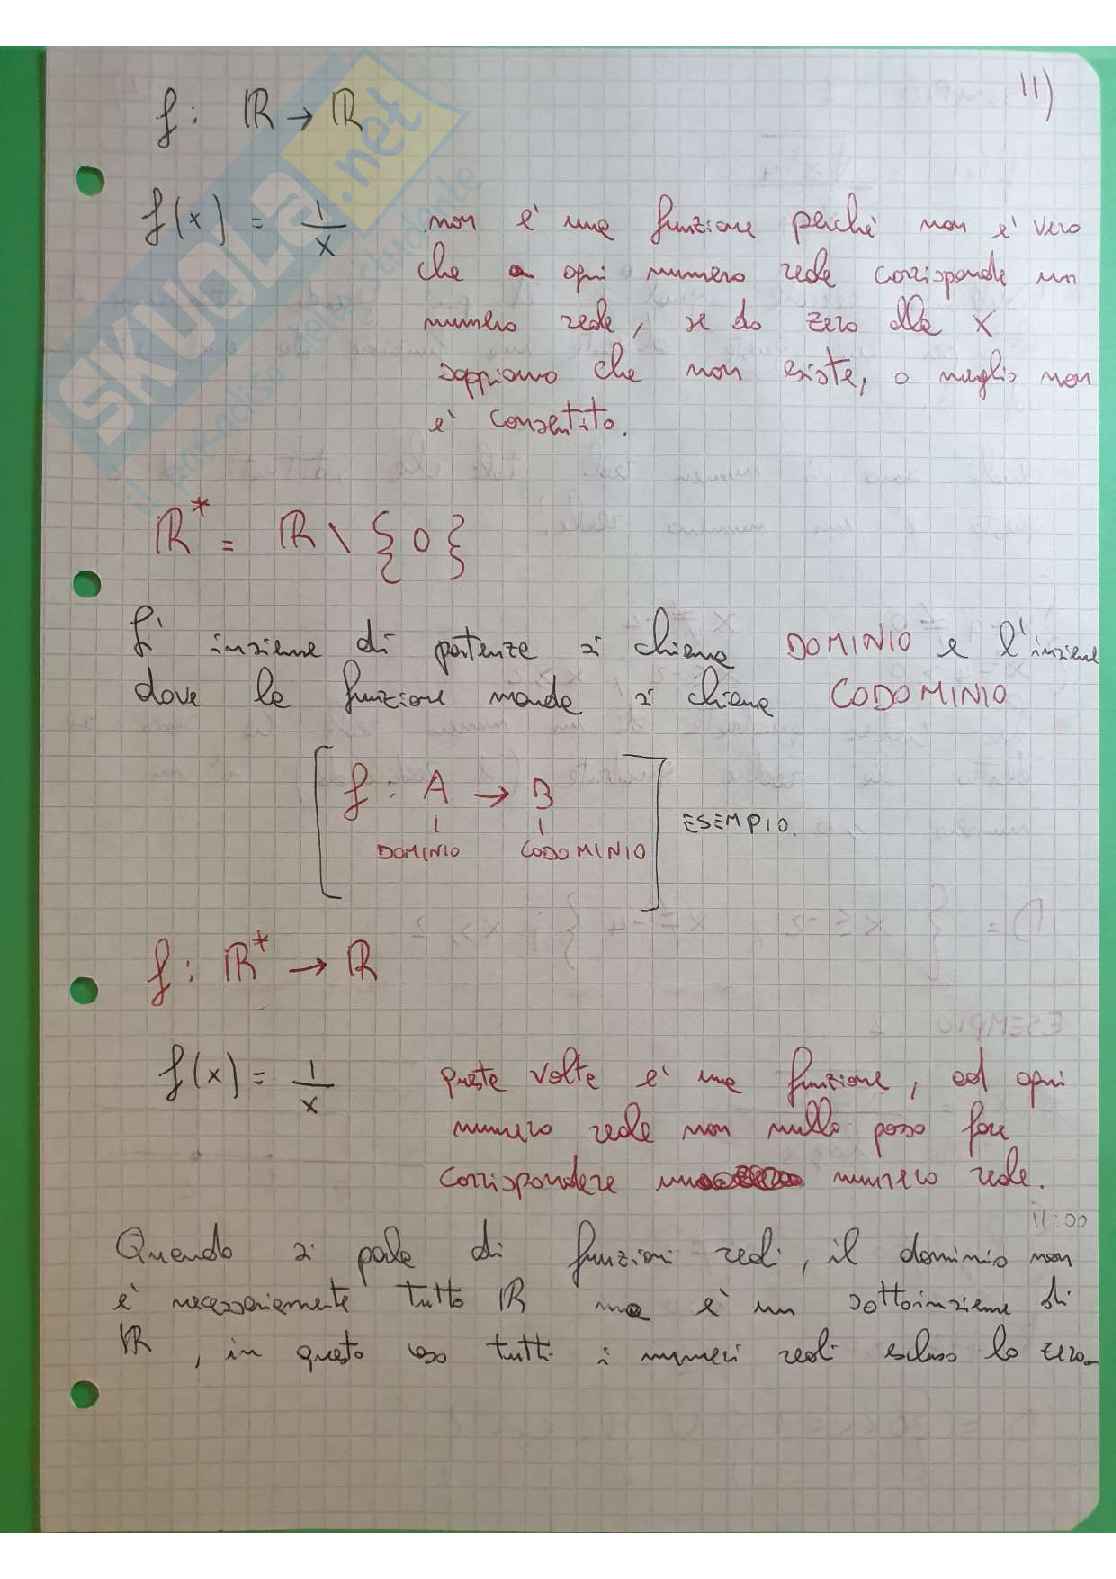 11)
f: ℝ → ℝ
f(x) = 1/x non è una funzione perché non è vero
che a ogni numero reale corrisponde un
numero reale, se do zero alla x
sappiamo che non esiste, o meglio non
è consentito.
ℝ* = ℝ \ {0}
L' insieme di partenza si chiama DOMINIO e l'insieme
dove la funzione manda si chiama CODOMINIO
[f: A → B] ESEMPIO.
DOMINIO CODOMINIO
f: ℝ* → ℝ
f(x) = 1/x questa volta è una funzione, ad ogni
numero reale non nullo posso fare
corrispondere un numero reale.
11:00
Quando si parla di funzioni reali, il dominio non
è necessariamente tutto ℝ ma è un sottoinsieme di
ℝ, in questo caso tutti i numeri reali escluso lo zero.
SKUOLA.net